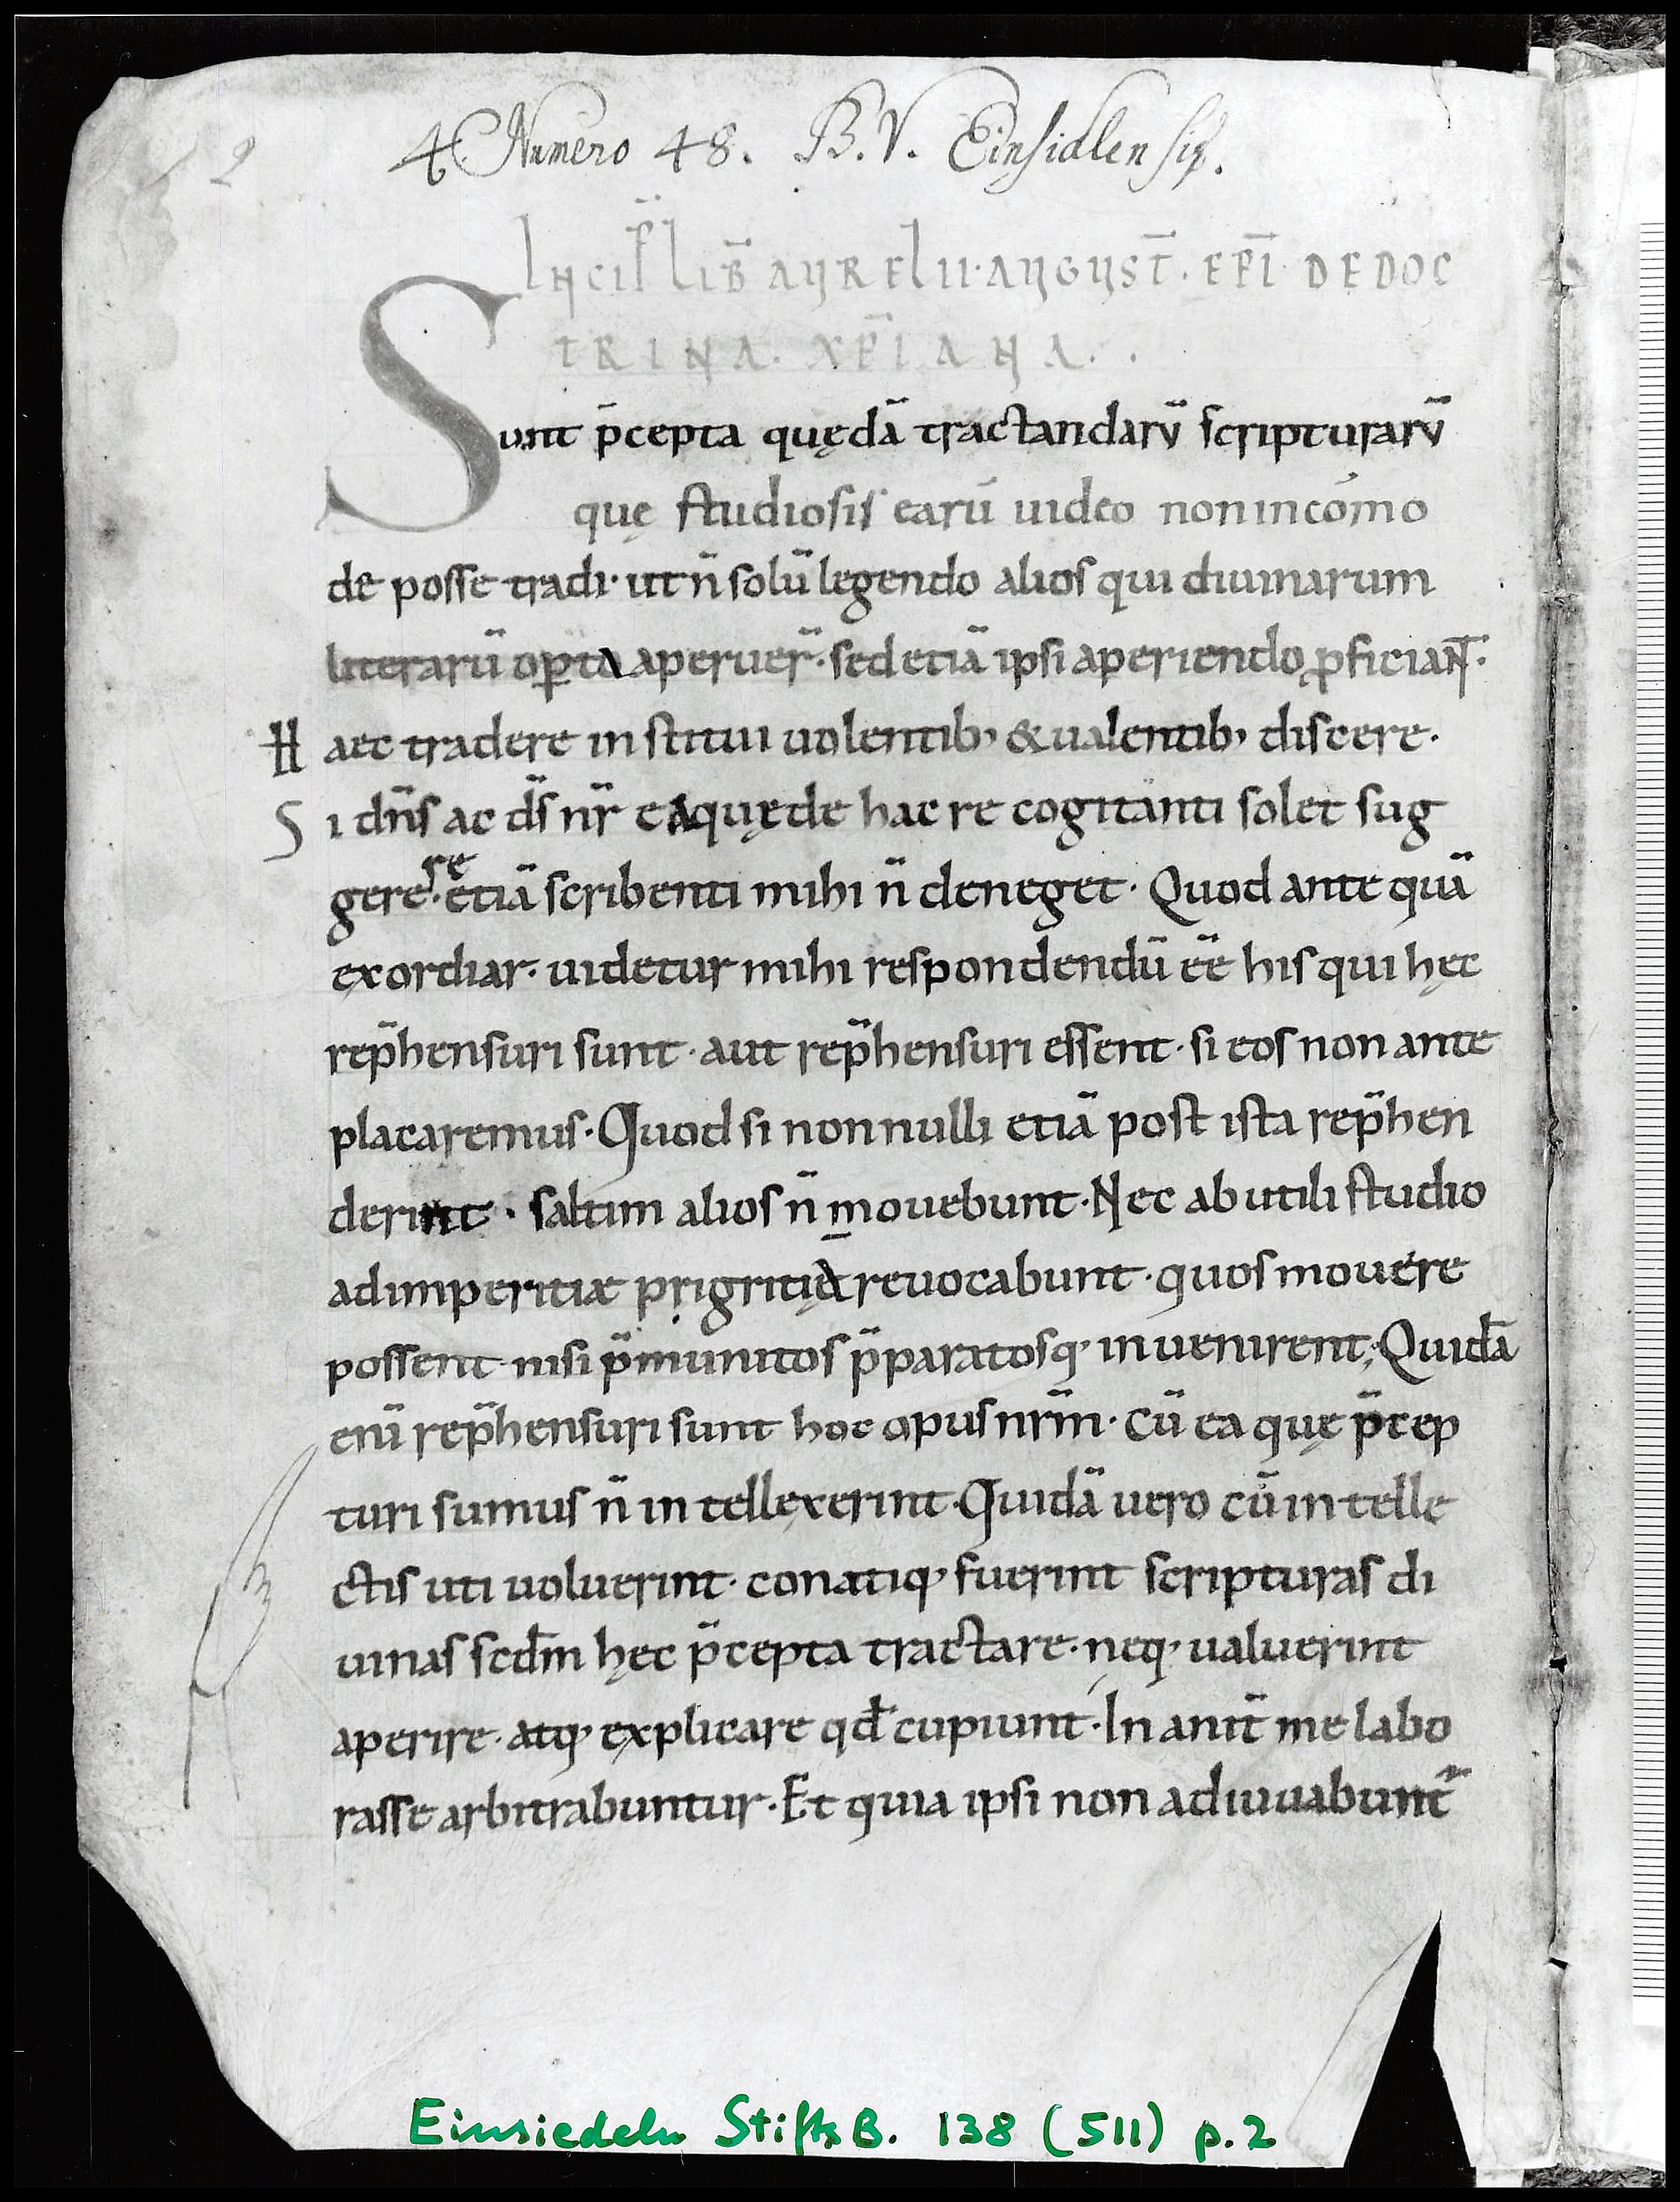 2
4. Numero 48. B.V. Einsidlensis.
INCIP̄ LIB̄ AURELII·AUGUST̄·EP̄I·DE DOC
TRINA·XP̄IANA·.
Sunt p̄cepta quędā tractandarū scripturarū
quę studiosis earū uideo non incōmo
de posse tradi· ut n̄ solū legendo alios qui diuinarum
literarū op̲ta aperuer̄· sed etiā ipsi aperiendo ꝓficiant̄·
Haec tradere institui uolentib; & ualentib; discere·
Si dn̄s ac ds̄ nr̄ ea quę de hac re cogitanti solet sug
gere·re etiā scribenti mihi n̄ deneget· Quod ante quā
exordiar· uidetur mihi respondendū eē his qui hęc
rep̄hensuri sunt· aut rep̄hensuri essent· si eos non ante
placaremus· Quod si nonnulli etiā post ista rep̄hen
derint· saltim alios n̄ mouebunt· Nec ab utili studio
ad imperitiæ prigritiā reuocabunt· quos mouere
possent nisi p̄munitos p̄paratosq· inuenirent; Quidā
enī rep̄hensuri sunt hoc opus nr̄m· Cū ea quę p̄cep
turi sumus n̄ intellexerint· Quidā uero cū intelle
ctis uti uoluerint· conatiq· fuerint scripturas di
uinas scd̄m hęc p̄cepta tractare· neq· ualuerint
aperire· atq· explicare qd̄ cupiunt· In anit̄ me labo
rasse arbitrabuntur· Et quia ipsi non adiuuabunt̄
Einsiedeln StiftsB. 138 (511) p.2